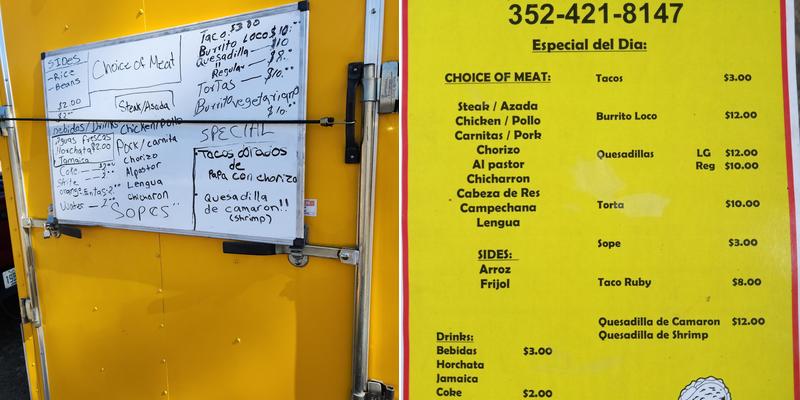 SIDES
-Rice
-Beans
$2.00
Choice of Meat
Steak/Asada
Chicken/Pollo
Pork/carnita
Chorizo
Alpastor
Lengua
chicharon
SOPES
Bebidas/Drinks
Aguas frescas
Horchata $2.00
Jamaica
Coke
Sprite
Water
Taco $3.00
Burrito Loco $10
Quesadilla $10
" Regular $8
Tortas $10
Burrito vegetariano
$10
SPECIAL
Tacos dorados
de
Papa con chorizo
Quesadilla
de camaron!!
(shrimp)
352-421-8147
Especial del Dia:
CHOICE OF MEAT:
Steak / Azada
Chicken / Pollo
Carnitas / Pork
Chorizo
Al pastor
Chicharron
Cabeza de Res
Campechana
Lengua
SIDES:
Arroz
Frijol
Drinks:
Bebidas $3.00
Horchata
Jamaica
Coke $2.00
Tacos $3.00
Burrito Loco $12.00
Quesadillas LG $12.00
Reg $10.00
Torta $10.00
Sope $3.00
Taco Ruby $8.00
Quesadilla de Camaron $12.00
Quesadilla de Shrimp